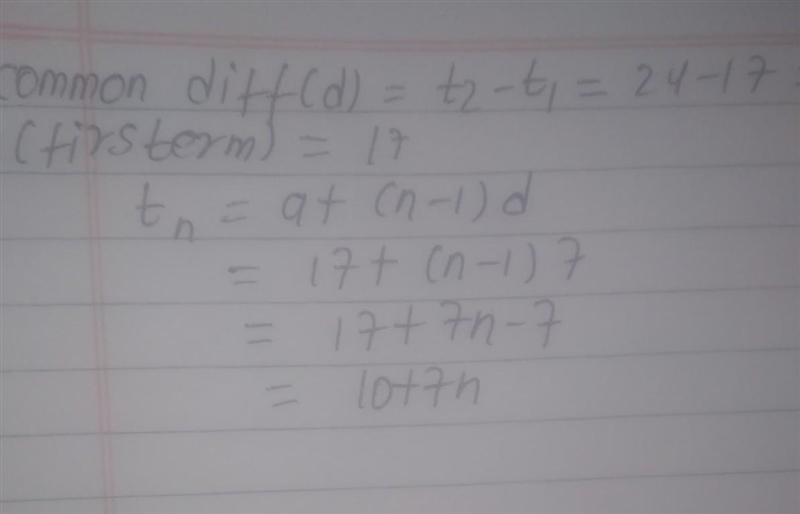 common diff(d) = t₂ - t₁ = 24 - 17 =
(firsterm) = 17
tₙ = a + (n-1) d
= 17 + (n-1) 7
= 17 + 7n - 7
= 10 + 7n